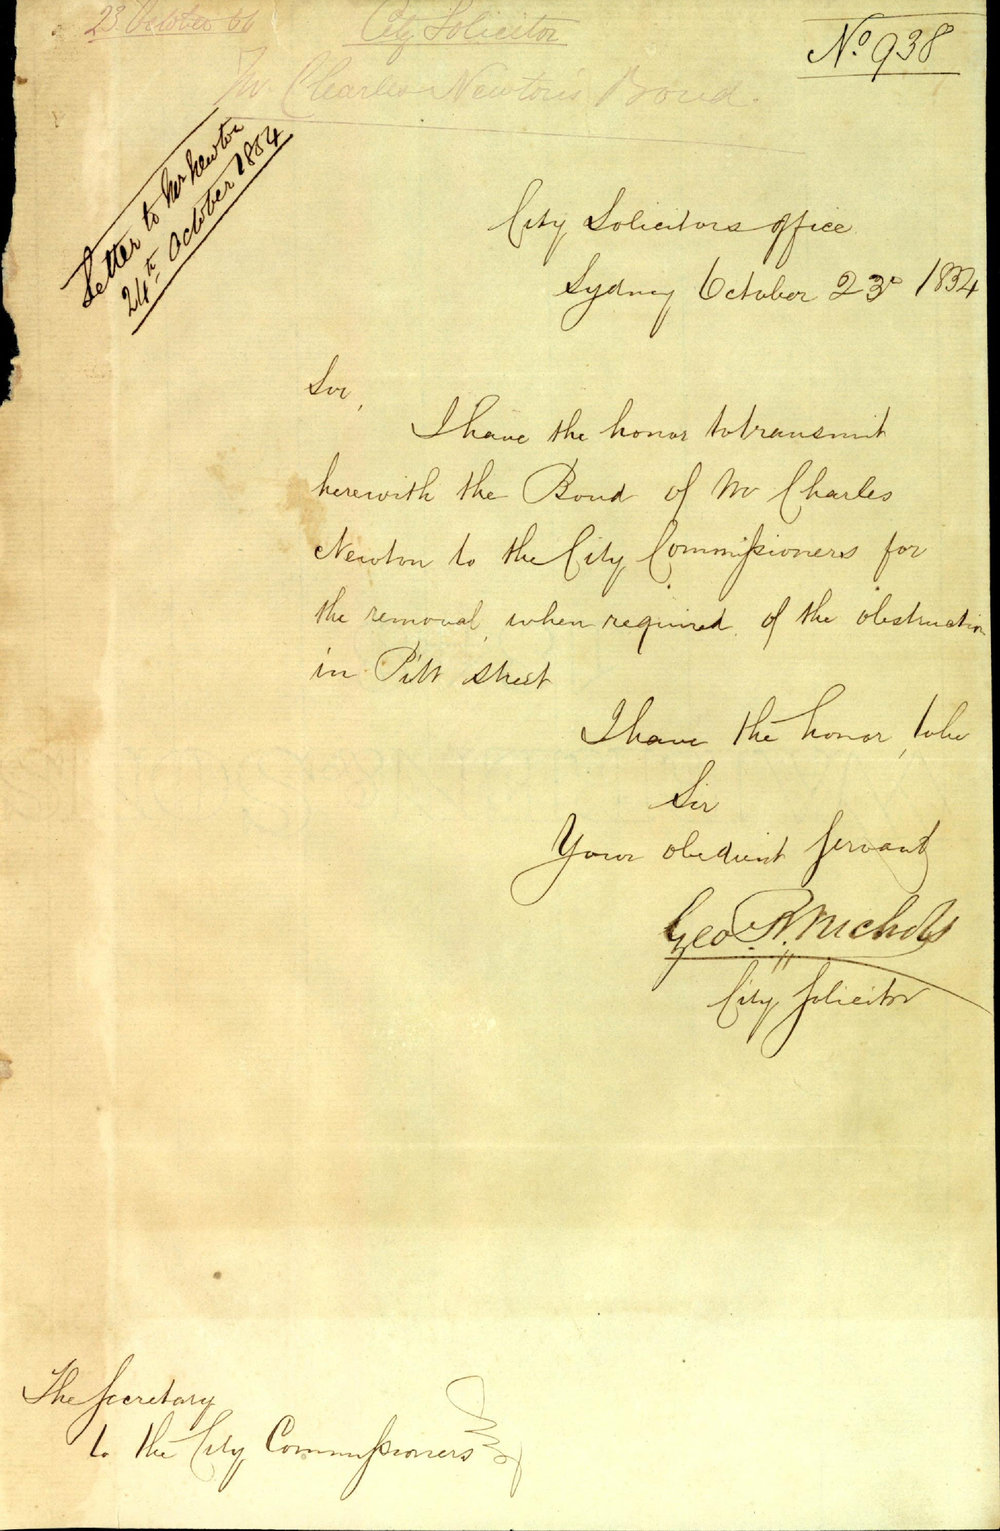 23 October 56
City Solicitor
No 938
Mr Charles Newton's Bond.
Letter to Mr Newton
24th October 1854
City Solicitors office
Sydney October 23d 1854
Sir,
I have the honor to transmit
herewith the Bond of Mr Charles
Newton to the City Commissioners for
the removal, when required, of the obstruction
in Pitt street
I have the honor, to be
Sir
Your obedient servant
Geo. R. Nichols
City Solicitor
The Secretary
to the City Commissioners